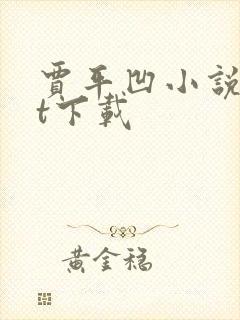 賈平凹小說
t下載
黃金稿